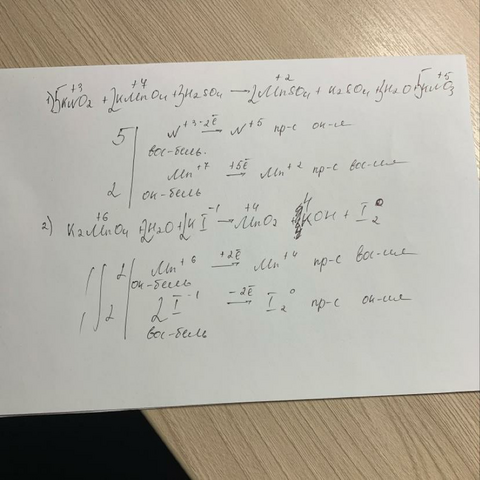 1) 5KNO₂ + 2KMnO₄ + 3H₂SO₄ → 2MnSO₄ + K₂SO₄ + 3H₂O + 5KNO₃
+3 +7 +2 +5
5 | N⁺³ -2ē → N⁺⁵ пр-с ок-ия
вос-тель.
2 | Mn⁺⁷ +5ē → Mn⁺² пр-с вос-ия
ок-тель
2) K₂MnO₄ + 2H₂O + 2KI⁻¹ → MnO₂ + 4KOH + I₂⁰
+6 +4
1 | 2 | Mn⁺⁶ +2ē → Mn⁺⁴ пр-с вос-ия
ок-тель
1 | 2 | 2I⁻¹ -2ē → I₂⁰ пр-с ок-ия
вос-тель